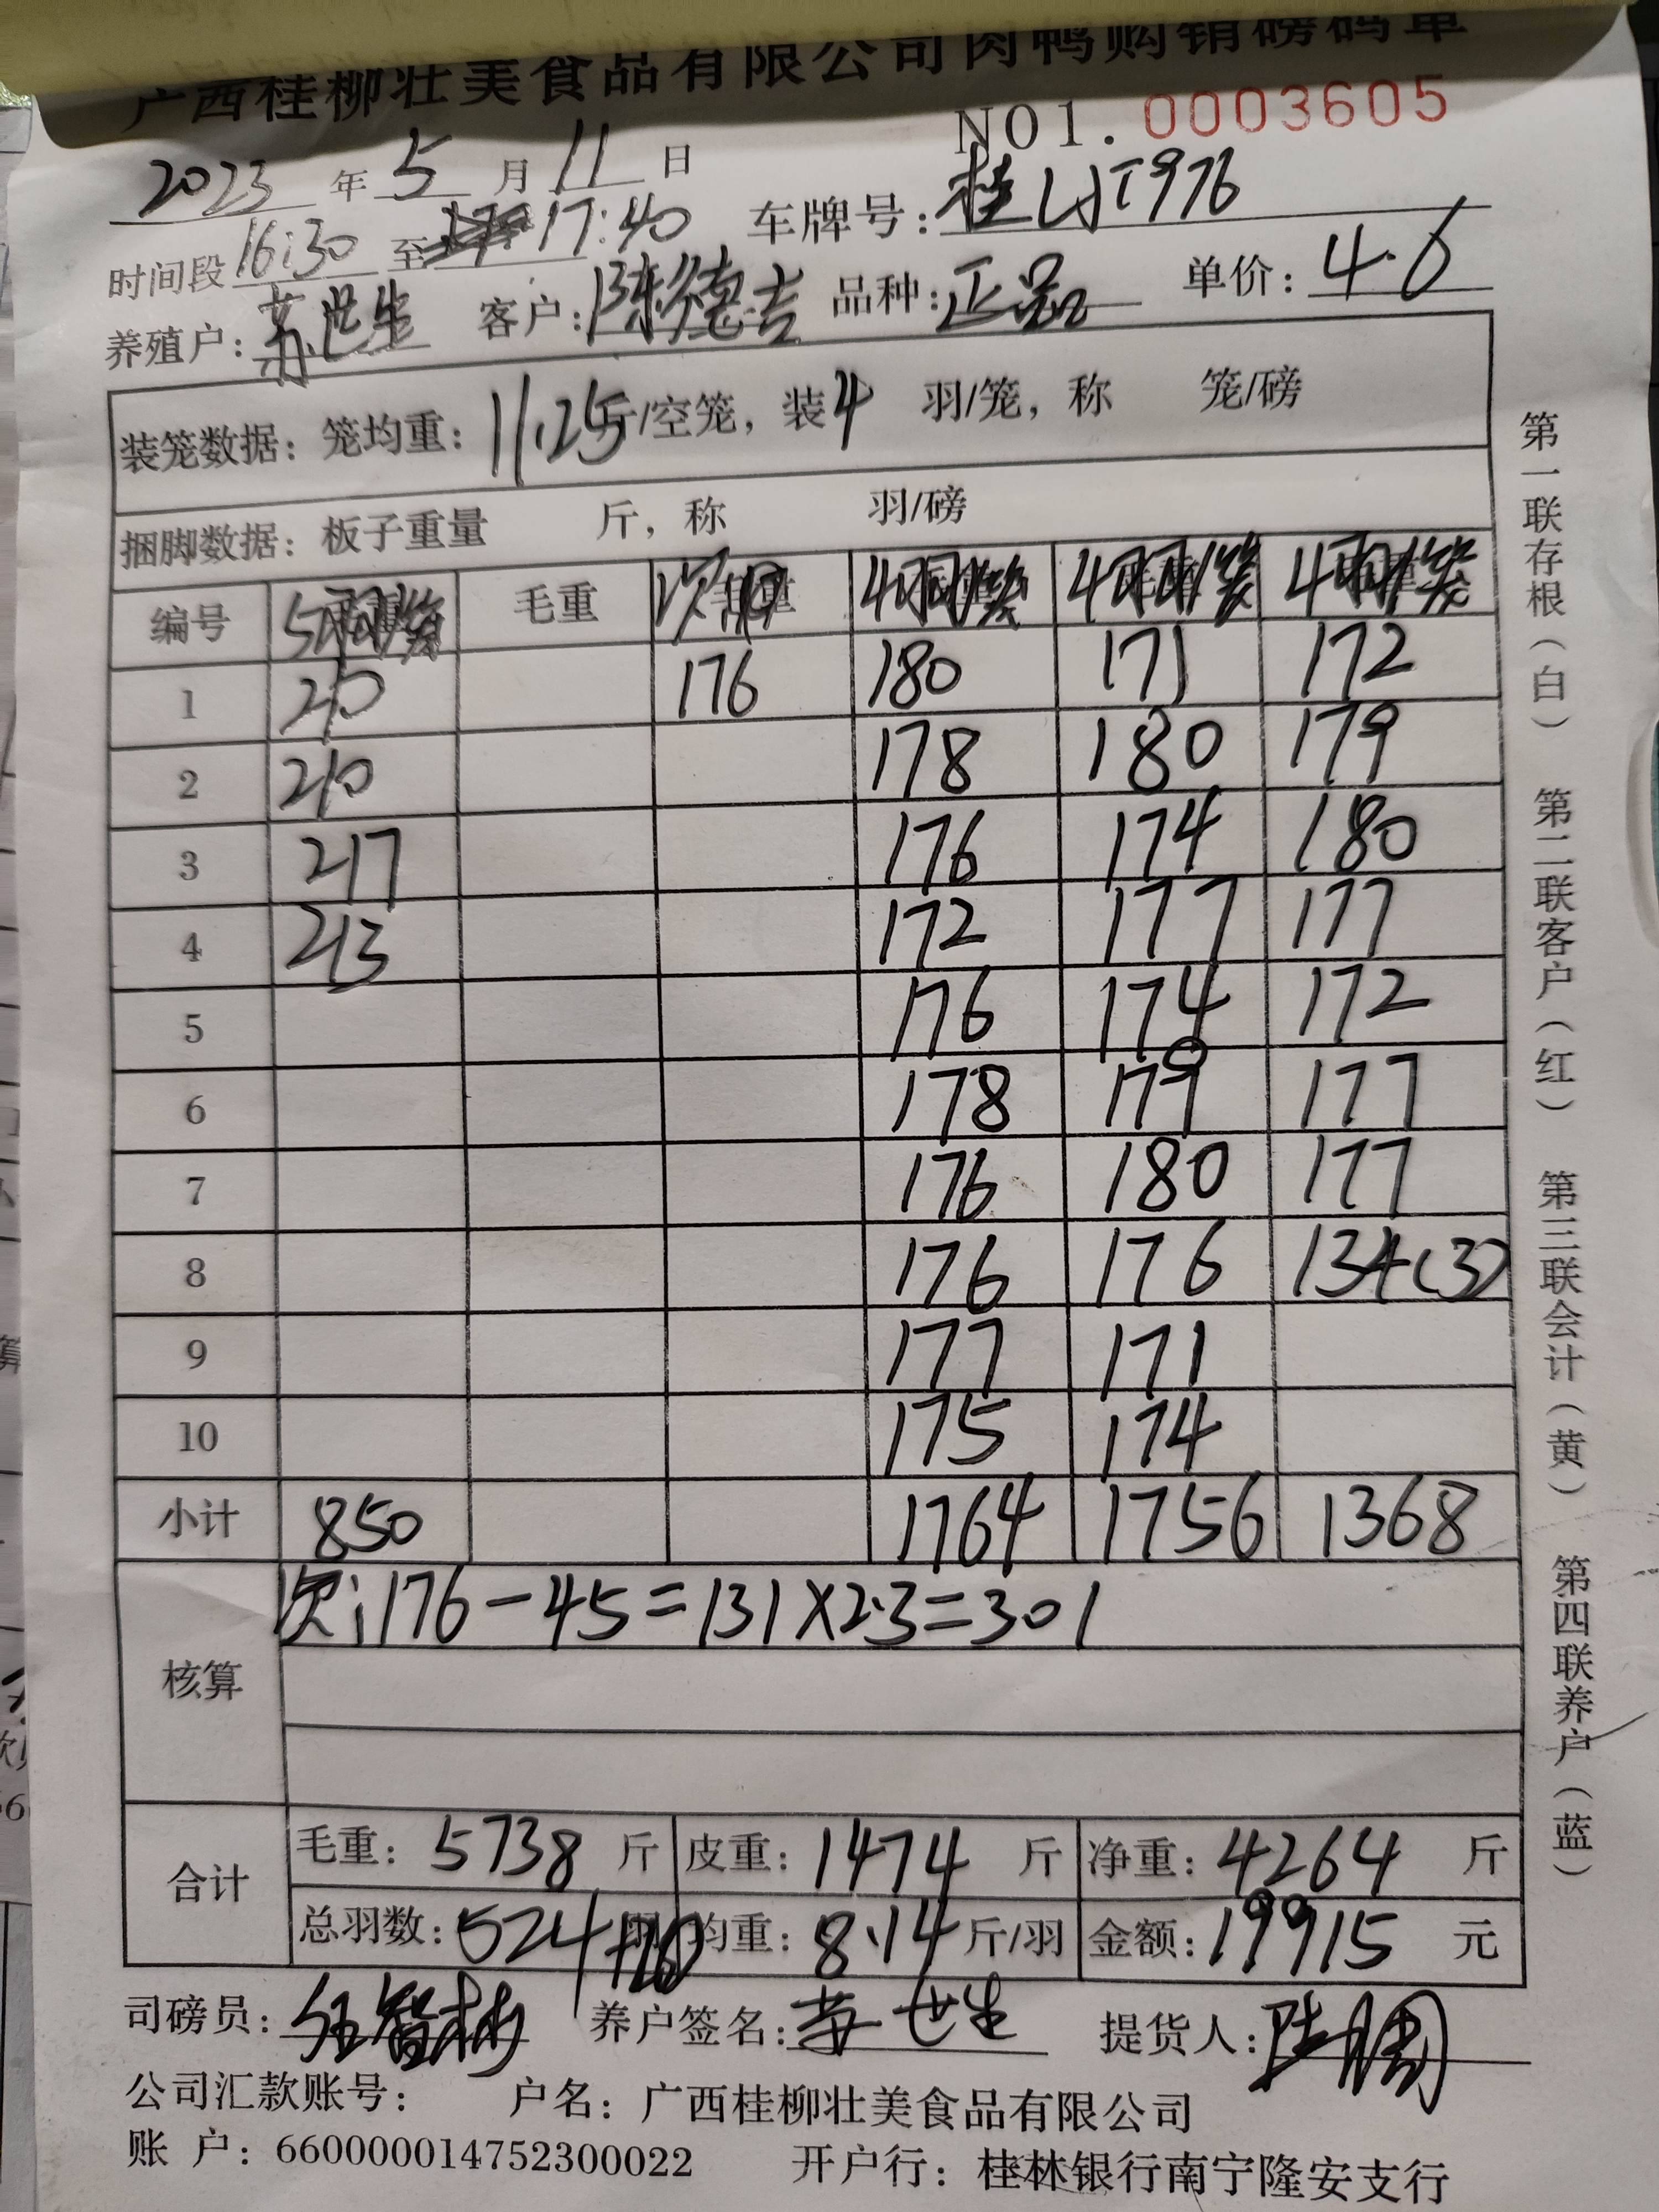 广西桂柳壮美食品有限公司肉鸭购销磅码单
NO1. 0003605
2023 年 5 月 11 日
时间段 16:30 至 17:40 车牌号: 桂 T976
养殖户: 苏世生 客户: 陈德吉 品种: 正品 单价: 4.6
装笼数据: 笼均重: 11.25 斤/空笼, 装 4 羽/笼, 称 笼/磅
捆脚数据: 板子重量 斤, 称 羽/磅
编号 5 毛重 次 4 4 4
1 210 176 180 171 172
2 210 178 180 179
3 217 176 174 180
4 213 172 177 177
5 176 174 172
6 178 179 177
7 176 180 177
8 176 176 134(3)
9 177 171
10 175 174
小计 850 1764 1756 1368
核算 次: 176-45=131×2.3=301
合计 毛重: 5738 斤 皮重: 1474 斤 净重: 4264 斤
总羽数: 524 羽 均重: 8.14 斤/羽 金额: 19915 元
司磅员: 养户签名: 苏世生 提货人: 陆
公司汇款账号: 户名: 广西桂柳壮美食品有限公司
账 户: 660000014752300022 开户行: 桂林银行南宁隆安支行
第一联存根(白) 第二联客户(红) 第三联会计(黄) 第四联养户(蓝)